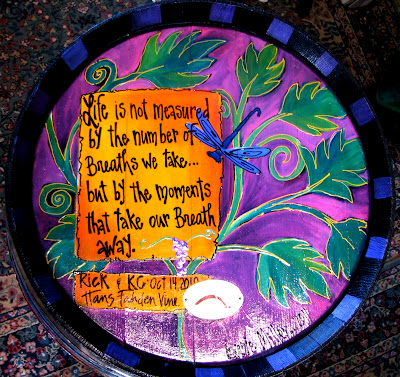 Life is not measured
by the number of
Breaths we take...
but by the moments
that take our Breath
away.
Rick & KC · Oct 14 2010
Hans Fahden Vine